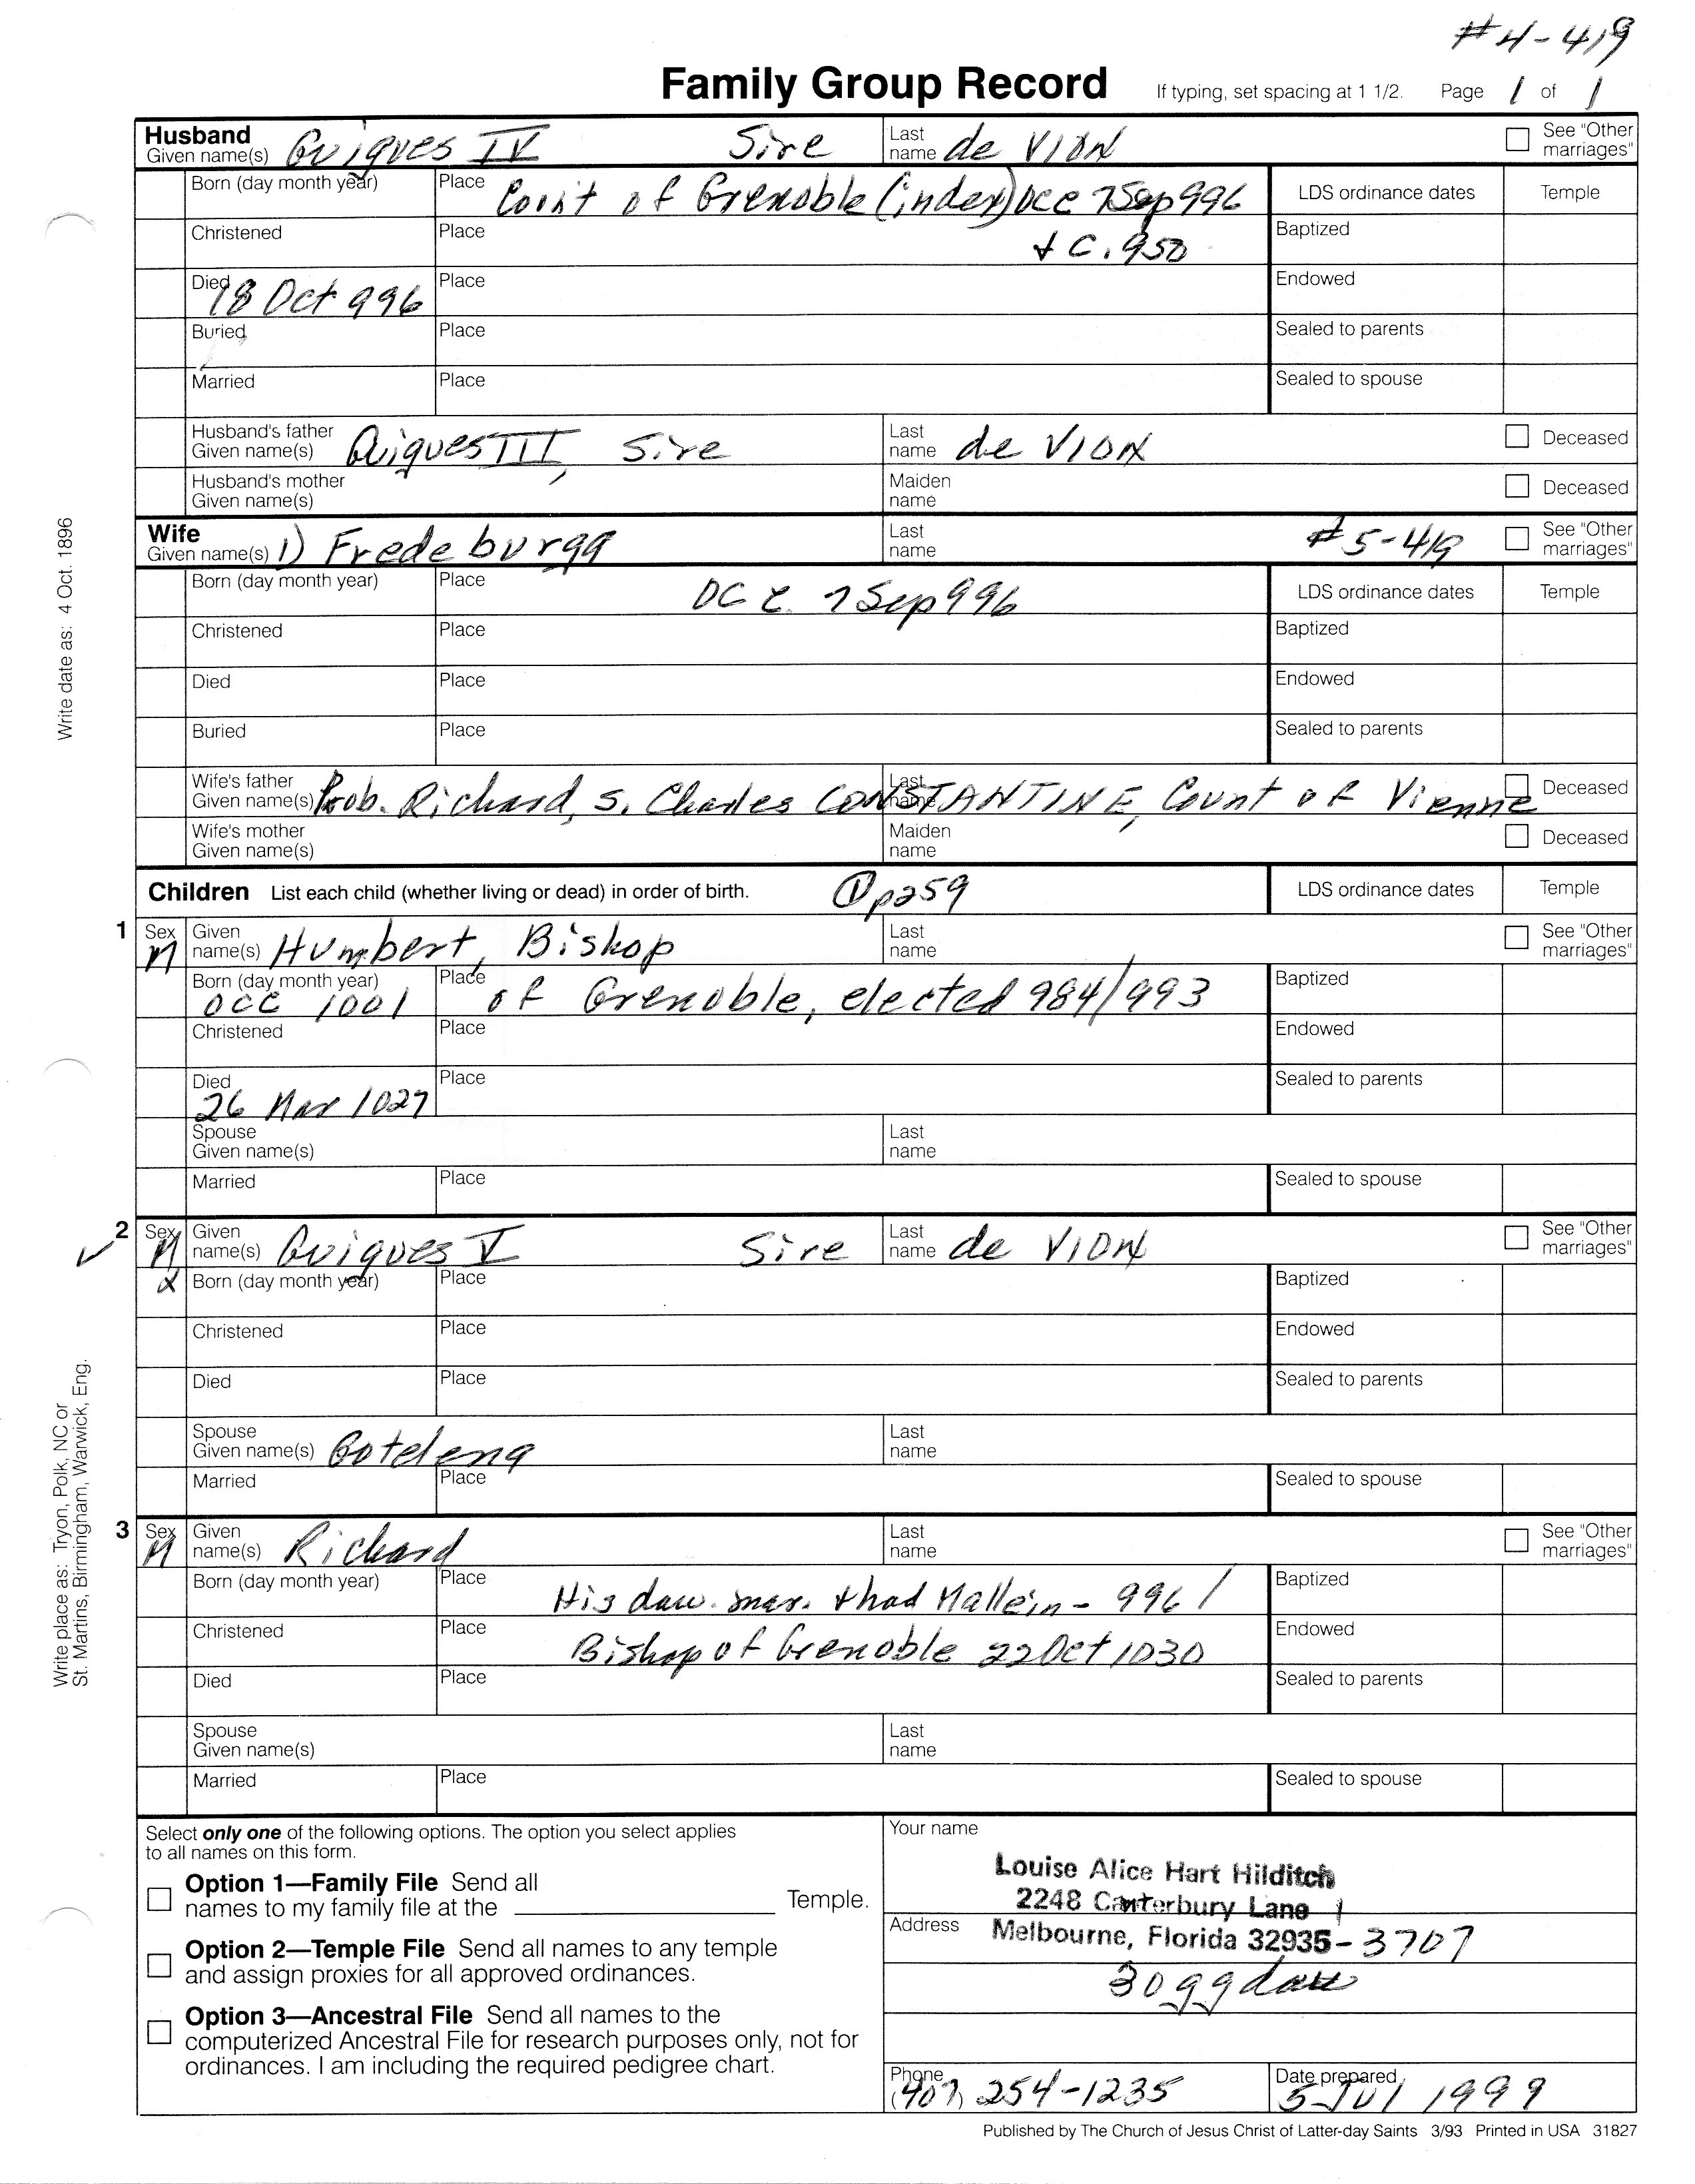 #4-419
Family Group Record If typing, set spacing at 1 1/2. Page 1 of 1
Husband
Given name(s) Guigues IV Sire Last name de VION See "Other marriages"
Born (day month year) Place Count of Grenoble (index) occ 7 Sep 996 LDS ordinance dates Temple
Christened Place + c. 950 Baptized
Died 18 Oct 996 Place Endowed
Buried Place Sealed to parents
Married Place Sealed to spouse
Husband's father Given name(s) Guigues III, Sire Last name de VION Deceased
Husband's mother Given name(s) Maiden name Deceased
Wife
Given name(s) 1) Fredeburga Last name #5-419 See "Other marriages"
Born (day month year) Place occ 7 Sep 996 LDS ordinance dates Temple
Christened Place Baptized
Died Place Endowed
Buried Place Sealed to parents
Wife's father Given name(s) Prob. Richard, s. Charles CONSTANTINE, Count of Vienne Last name Deceased
Wife's mother Given name(s) Maiden name Deceased
Children List each child (whether living or dead) in order of birth. ① p259 LDS ordinance dates Temple
1 Sex M Given name(s) Humbert, Bishop Last name See "Other marriages"
Born (day month year) occ 1001 Place of Grenoble, elected 984/993 Baptized
Christened Place Endowed
Died 26 Mar 1027 Place Sealed to parents
Spouse Given name(s) Last name
Married Place Sealed to spouse
2 Sex M Given name(s) Guigues V Sire Last name de VION See "Other marriages"
X Born (day month year) Place Baptized
Christened Place Endowed
Died Place Sealed to parents
Spouse Given name(s) Gotelena Last name
Married Place Sealed to spouse
3 Sex M Given name(s) Richard Last name See "Other marriages"
Born (day month year) Place His dau. mar. & had Mallein - 996 / Baptized
Christened Place Bishop of Grenoble 22 Oct 1030 Endowed
Died Place Sealed to parents
Spouse Given name(s) Last name
Married Place Sealed to spouse
Select only one of the following options. The option you select applies
to all names on this form.
Option 1—Family File Send all
names to my family file at the Temple.
Option 2—Temple File Send all names to any temple
and assign proxies for all approved ordinances.
Option 3—Ancestral File Send all names to the
computerized Ancestral File for research purposes only, not for
ordinances. I am including the required pedigree chart.
Your name
Louise Alice Hart Hilditch
2248 Canterbury Lane
Address Melbourne, Florida 32935-3707
30 gg dau
Phone (407) 254-1235 Date prepared 5 Jul 1999
Published by The Church of Jesus Christ of Latter-day Saints 3/93 Printed in USA 31827
Write date as: 4 Oct. 1896
Write place as: Tryon, Polk, NC or
St. Martins, Birmingham, Warwick, Eng.